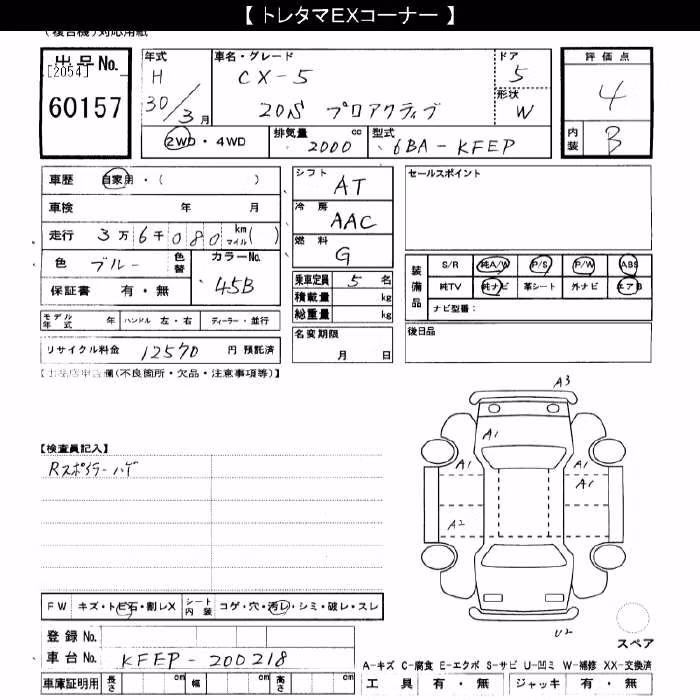 【 トレタマEXコーナー 】
(複合機)対応用紙
出品No.
[2054]
60157
年式
H
30/3月
車名・グレード
CX-5
20S プロアクティブ
ドア
5
形状
W
評価点
4
内装
B
2WD・4WD
排気量
2000 cc
型式
6BA-KFEP
車歴 自家用・( )
車検 年 月
走行 3万6千080 km マイル( )
色 ブルー 色替 カラーNo. 45B
保証書 有・無
シフト AT
冷房 AAC
燃料 G
乗車定員 5 名
積載量 kg
総重量 kg
セールスポイント
装備品
S/R 純A/W P/S P/W ABS
純TV 純ナビ 革シート 外ナビ エアB
ナビ型番:
モデル年式 年 ハンドル 左・右 ディーラー・並行
名変期限 月 日
後日品
リサイクル料金 12570 円 預託済
(不良箇所・欠品・注意事項等)】
【検査員記入】
Rスポイラーハゲ
A3
A1
A1
A1
A1
A2
U2
スペア
FW キズ・トビ石・割レX シート内装 コゲ・穴・汚レ・シミ・破レ・スレ
登録No.
車台No. KFEP-200218
車庫証明用 長さ cm 幅 cm 高さ cm
A-キズ C-腐食 E-エクボ S-サビ U-凹ミ W-補修 XX-交換済
工具 有・無 ジャッキ 有・無